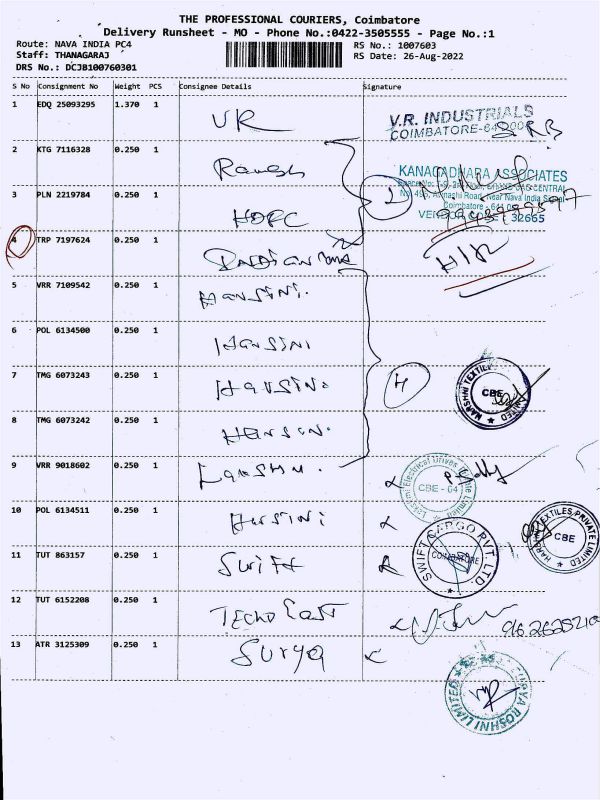 THE PROFESSIONAL COURIERS, Coimbatore
Delivery Runsheet - MO - Phone No.:0422-3505555 - Page No.:1
Route: NAVA INDIA PC4
RS No.: 1007603
Staff: THANAGARAJ
RS Date: 26-Aug-2022
DRS No.: DCJB100760301
S No Consignment No Weight PCS Consignee Details Signature
1 EDQ 25093295 1.370 1 VR
V.R. INDUSTRIALS
COIMBATORE-
2 KTG 7116328 0.250 1 Ramesh
KANAGADHARA ASSOCIATES
3 PLN 2219784 0.250 1 HDFC
Near Nava India
Coimbatore
32665
4 TRP 7197624 0.250 1
5 VRR 7109542 0.250 1 Hansini.
6 POL 6134500 0.250 1 Hansini
7 TMG 6073243 0.250 1 Hansini
4
CBE
8 TMG 6073242 0.250 1 Hansini.
9 VRR 9018602 0.250 1 Lakshmi.
CBE - 64
10 POL 6134511 0.250 1 Hansini
TEXTILES PRIVATE LIMITED
CBE
11 TUT 863157 0.250 1 Swift
SWIFT CARGO PVT. LTD.
COIMBATORE
12 TUT 6152208 0.250 1 Techno East
13 ATR 3125309 0.250 1 Surya
SURYA ROSHNI LIMITED